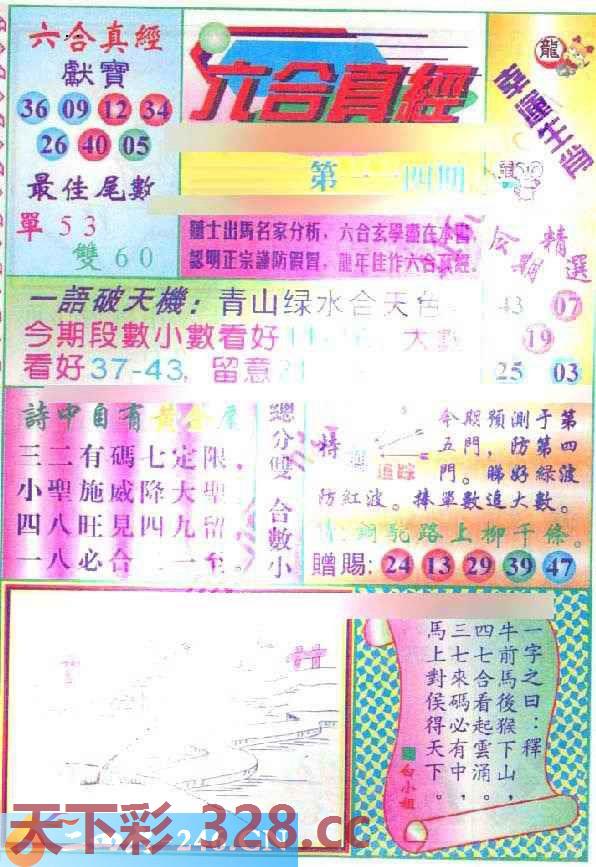 六合真經
獻寶
36 09 12 34
26 40 05
最佳尾數
單 5 3
雙 6 0
六合真經
第一一四期
賭士出馬名家分析，六合玄學盡在本書
認明正宗謹防假冒，龍年佳作六合真經.
龍
幸運生肖
鼠
公期精選
43 07
19
25 03
一語破天機：青山绿水合天色
今期段數小數看好 大數
看好37-43，留意
詩中自有黃金屋
三二有碼七定限。
小聖施威降大聖
四八旺見四九留
一八必合二一至。
總分雙 合數小
特
追踪
今期預測于第
五門，防第四
門。睇好綠波
防紅波。捧單數追大數。
銅駝路上柳千條。
贈賜: 24 13 29 39 47
一字之曰：釋
牛前馬後猴下山，
四七合看起雲涌。
三七來碼必有中，
馬上對侯得天下。
白小姐
天下彩 328.cc
246.CN